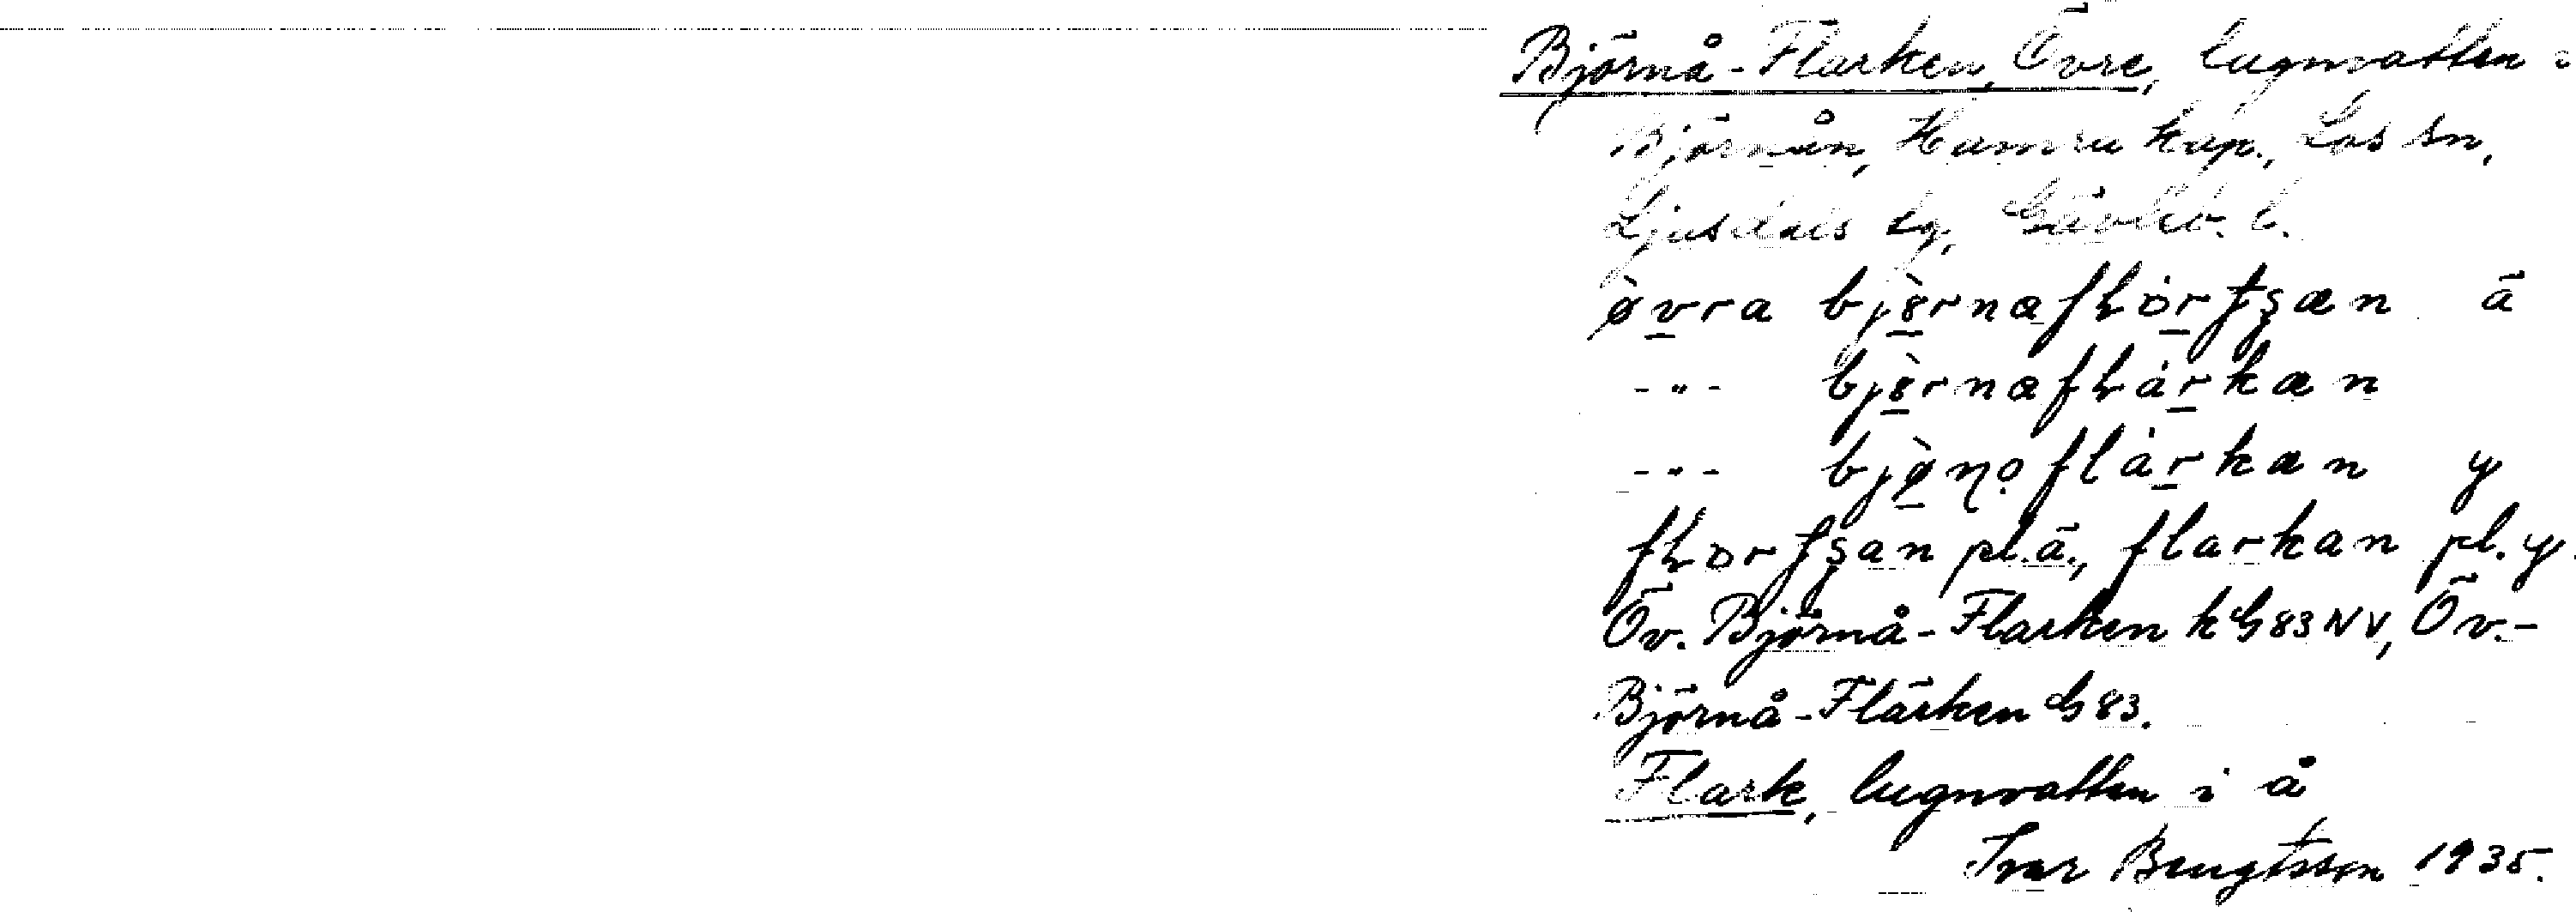 Björnå-Flarken, Övre, lugnvatten i
Björnån, Hamra kap., Los sn,
Ljusdals tg, Gävleb. l.
øvra bjørnaflortʂæn ä
-"- bjørnaflarkæn
-"- bjøɳoflarkæn y
flortʂan pl. ä., flarkan pl. y.
Öv. Björnå-Flarken kG83NV, Öv.-
Björnå-Flärken G83.
Flark, lugnvatten i å
Ivar Bengtsson 1935.